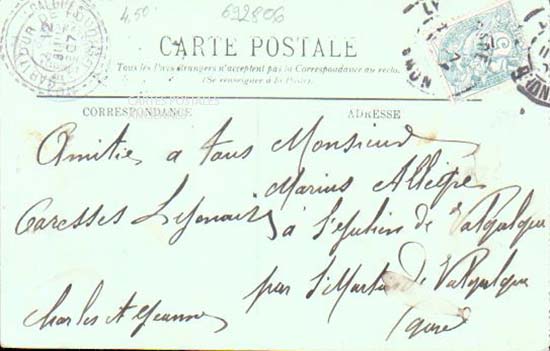 4,50
692806
CARTE POSTALE
Tous les Pays étrangers n'acceptent pas la Correspondance au recto.
(Se renseigner à la Poste).
CARTES POSTALES
CORRESPONDANCE
ADRESSE
Amitiés a tous
Caresses Lyonnais
Charles A Jeanne
Monsieur
Marius Allègre
à St Julien de Valgalgue
par St Martin de Valgalgue
Gard